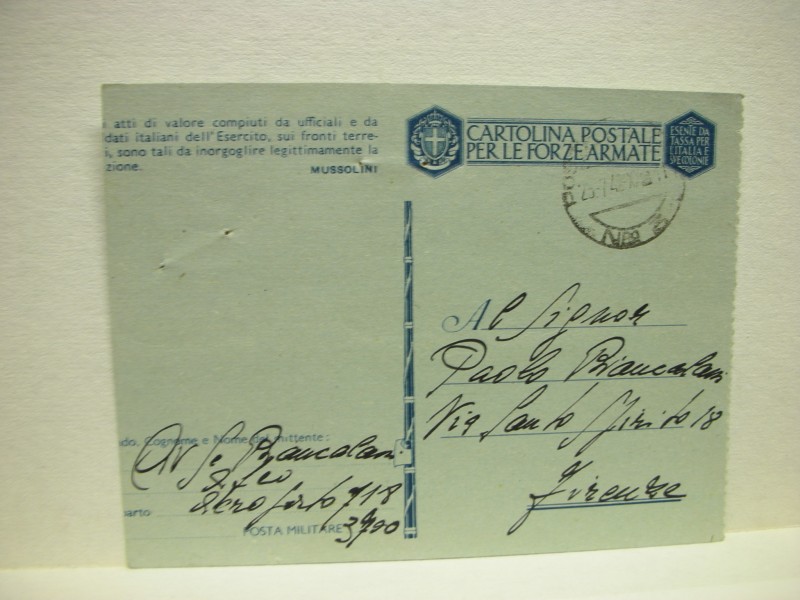 i atti di valore compiuti da ufficiali e da
dati italiani dell'Esercito, sui fronti terre-
i, sono tali da inorgoglire legittimamente la
zione.
MUSSOLINI
CARTOLINA POSTALE
PER LE FORZE ARMATE
ESENTE DA
TASSA PER
L'ITALIA E
SVE COLONIE
Al Signor
Paolo Biancalani
Via Santo Spirito 18
Firenze
ado, Cognome e Nome del mittente:
Av Biancalani
Aeroporto 718
parto
POSTA MILITARE 3700